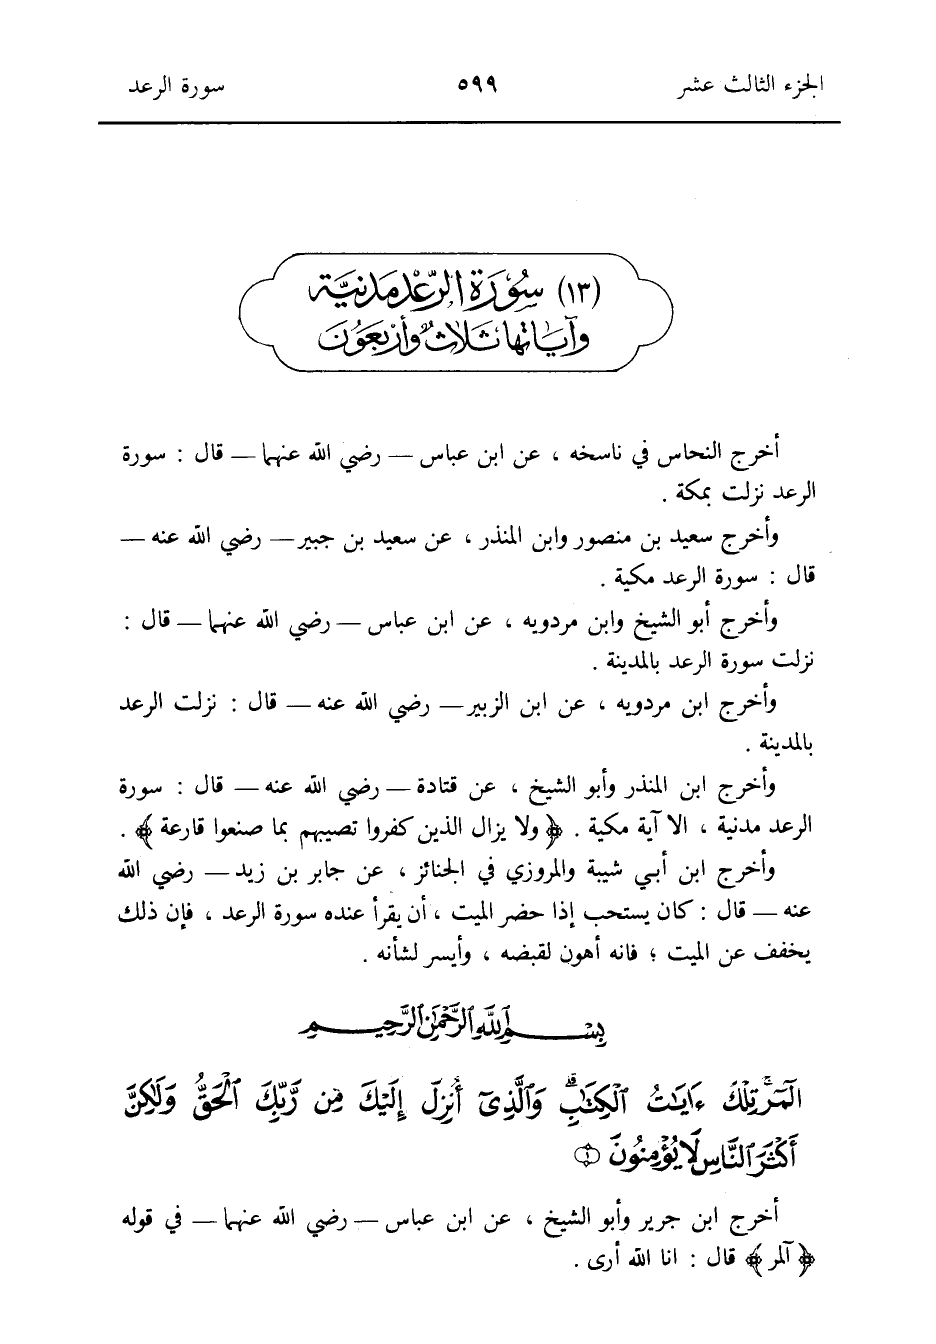 الجزء الثالث عشر ٥٩٩ سورة الرعد
(١٣) سُورَة الرَّعْد مَدَنيَّة
وآيَاتها ثَلَاثٌ وأَرْبَعُونَ
أخرج النحاس في ناسخه ، عن ابن عباس — رضي الله عنهما — قال : سورة
الرعد نزلت بمكة .
وأخرج سعيد بن منصور وابن المنذر ، عن سعيد بن جبير — رضي الله عنه —
قال : سورة الرعد مكية .
وأخرج أبو الشيخ وابن مردويه ، عن ابن عباس — رضي الله عنهما — قال :
نزلت سورة الرعد بالمدينة .
وأخرج ابن مردويه ، عن ابن الزبير — رضي الله عنه — قال : نزلت الرعد
بالمدينة .
وأخرج ابن المنذر وأبو الشيخ ، عن قتادة — رضي الله عنه — قال : سورة
الرعد مدنية ، الا آية مكية . ﴿ ولا يزال الذين كفروا تصيبهم بما صنعوا قارعة ﴾ .
وأخرج ابن أبي شيبة والمروزي في الجنائز ، عن جابر بن زيد — رضي الله
عنه — قال : كان يستحب إذا حضر الميت ، أن يقرأ عنده سورة الرعد ، فإن ذلك
يخفف عن الميت ؛ فانه أهون لقبضه ، وأيسر لشأنه .
بِسْمِ ٱللَّهِ ٱلرَّحْمَٰنِ ٱلرَّحِيمِ
الٓمٓر ۚ تِلْكَ ءَايَٰتُ ٱلْكِتَٰبِ ۗ وَٱلَّذِىٓ أُنزِلَ إِلَيْكَ مِن رَّبِّكَ ٱلْحَقُّ وَلَٰكِنَّ
أَكْثَرَ ٱلنَّاسِ لَا يُؤْمِنُونَ ۝١
أخرج ابن جرير وأبو الشيخ ، عن ابن عباس — رضي الله عنهما — في قوله
﴿ آلمر ﴾ قال : انا الله أرى .